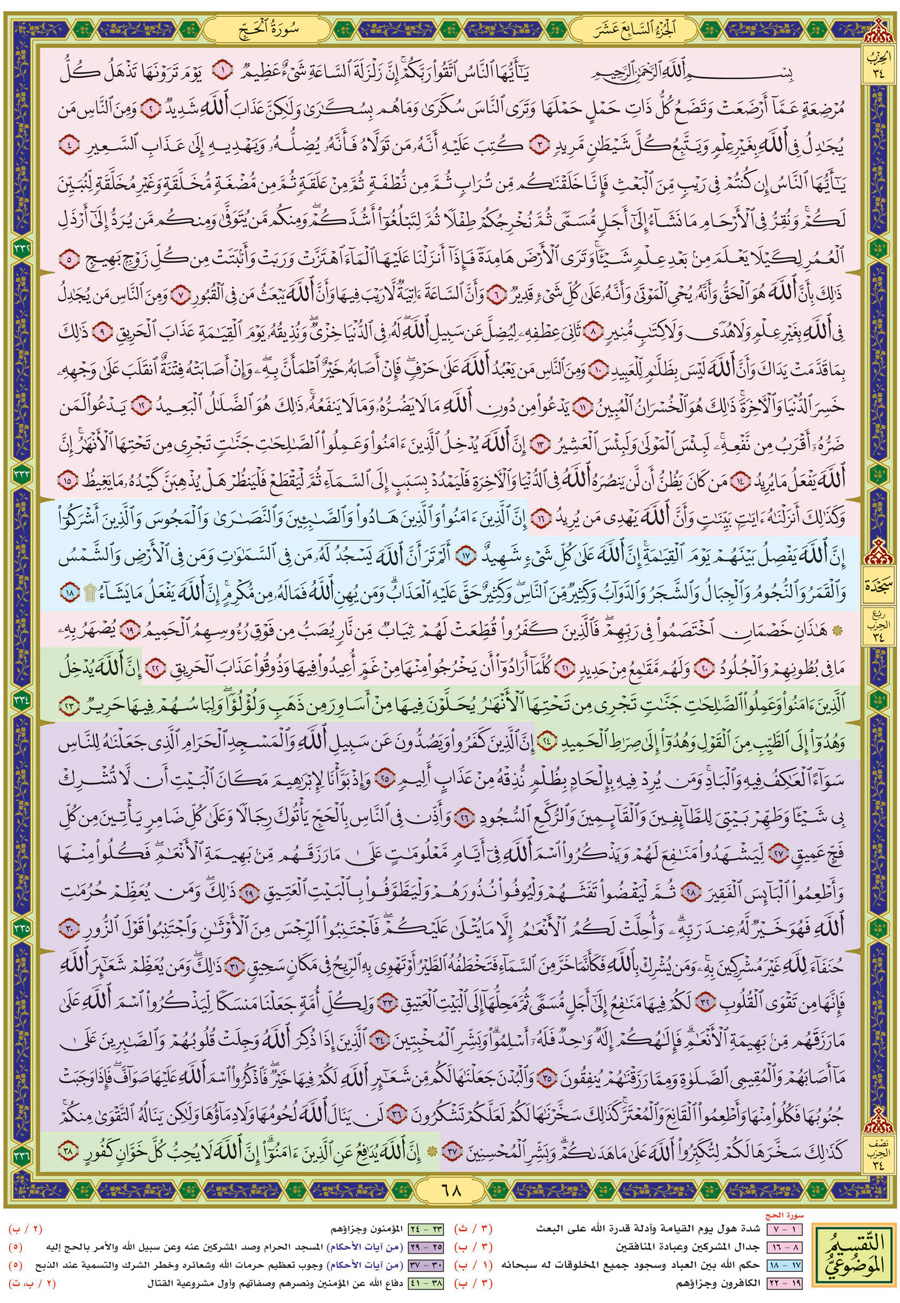 الجزء السابع عشر
سورة الحج
الحزب
٣٤
بِسْمِ ٱللَّهِ ٱلرَّحْمَٰنِ ٱلرَّحِيمِ يَٰٓأَيُّهَا ٱلنَّاسُ ٱتَّقُوا۟ رَبَّكُمْ ۚ إِنَّ زَلْزَلَةَ ٱلسَّاعَةِ شَىْءٌ عَظِيمٌ ١ يَوْمَ تَرَوْنَهَا تَذْهَلُ كُلُّ
مُرْضِعَةٍ عَمَّآ أَرْضَعَتْ وَتَضَعُ كُلُّ ذَاتِ حَمْلٍ حَمْلَهَا وَتَرَى ٱلنَّاسَ سُكَٰرَىٰ وَمَا هُم بِسُكَٰرَىٰ وَلَٰكِنَّ عَذَابَ ٱللَّهِ شَدِيدٌ ٢ وَمِنَ ٱلنَّاسِ مَن
يُجَٰدِلُ فِى ٱللَّهِ بِغَيْرِ عِلْمٍ وَيَتَّبِعُ كُلَّ شَيْطَٰنٍ مَّرِيدٍ ٣ كُتِبَ عَلَيْهِ أَنَّهُۥ مَن تَوَلَّاهُ فَأَنَّهُۥ يُضِلُّهُۥ وَيَهْدِيهِ إِلَىٰ عَذَابِ ٱلسَّعِيرِ ٤
يَٰٓأَيُّهَا ٱلنَّاسُ إِن كُنتُمْ فِى رَيْبٍ مِّنَ ٱلْبَعْثِ فَإِنَّا خَلَقْنَٰكُم مِّن تُرَابٍ ثُمَّ مِن نُّطْفَةٍ ثُمَّ مِنْ عَلَقَةٍ ثُمَّ مِن مُّضْغَةٍ مُّخَلَّقَةٍ وَغَيْرِ مُخَلَّقَةٍ لِّنُبَيِّنَ
لَكُمْ ۚ وَنُقِرُّ فِى ٱلْأَرْحَامِ مَا نَشَآءُ إِلَىٰٓ أَجَلٍ مُّسَمًّى ثُمَّ نُخْرِجُكُمْ طِفْلًا ثُمَّ لِتَبْلُغُوٓا۟ أَشُدَّكُمْ ۖ وَمِنكُم مَّن يُتَوَفَّىٰ وَمِنكُم مَّن يُرَدُّ إِلَىٰٓ أَرْذَلِ
ٱلْعُمُرِ لِكَيْلَا يَعْلَمَ مِنۢ بَعْدِ عِلْمٍ شَيْـًٔا ۚ وَتَرَى ٱلْأَرْضَ هَامِدَةً فَإِذَآ أَنزَلْنَا عَلَيْهَا ٱلْمَآءَ ٱهْتَزَّتْ وَرَبَتْ وَأَنۢبَتَتْ مِن كُلِّ زَوْجٍۭ بَهِيجٍ ٥
ذَٰلِكَ بِأَنَّ ٱللَّهَ هُوَ ٱلْحَقُّ وَأَنَّهُۥ يُحْىِ ٱلْمَوْتَىٰ وَأَنَّهُۥ عَلَىٰ كُلِّ شَىْءٍ قَدِيرٌ ٦ وَأَنَّ ٱلسَّاعَةَ ءَاتِيَةٌ لَّا رَيْبَ فِيهَا وَأَنَّ ٱللَّهَ يَبْعَثُ مَن فِى ٱلْقُبُورِ ٧ وَمِنَ ٱلنَّاسِ مَن يُجَٰدِلُ
فِى ٱللَّهِ بِغَيْرِ عِلْمٍ وَلَا هُدًى وَلَا كِتَٰبٍ مُّنِيرٍ ٨ ثَانِىَ عِطْفِهِۦ لِيُضِلَّ عَن سَبِيلِ ٱللَّهِ ۖ لَهُۥ فِى ٱلدُّنْيَا خِزْىٌ ۖ وَنُذِيقُهُۥ يَوْمَ ٱلْقِيَٰمَةِ عَذَابَ ٱلْحَرِيقِ ٩ ذَٰلِكَ
بِمَا قَدَّمَتْ يَدَاكَ وَأَنَّ ٱللَّهَ لَيْسَ بِظَلَّٰمٍ لِّلْعَبِيدِ ١٠ وَمِنَ ٱلنَّاسِ مَن يَعْبُدُ ٱللَّهَ عَلَىٰ حَرْفٍ ۖ فَإِنْ أَصَابَهُۥ خَيْرٌ ٱطْمَأَنَّ بِهِۦ ۖ وَإِنْ أَصَابَتْهُ فِتْنَةٌ ٱنقَلَبَ عَلَىٰ وَجْهِهِۦ
خَسِرَ ٱلدُّنْيَا وَٱلْءَاخِرَةَ ۚ ذَٰلِكَ هُوَ ٱلْخُسْرَانُ ٱلْمُبِينُ ١١ يَدْعُوا۟ مِن دُونِ ٱللَّهِ مَا لَا يَضُرُّهُۥ وَمَا لَا يَنفَعُهُۥ ۚ ذَٰلِكَ هُوَ ٱلضَّلَٰلُ ٱلْبَعِيدُ ١٢ يَدْعُوا۟ لَمَن
ضَرُّهُۥٓ أَقْرَبُ مِن نَّفْعِهِۦ ۚ لَبِئْسَ ٱلْمَوْلَىٰ وَلَبِئْسَ ٱلْعَشِيرُ ١٣ إِنَّ ٱللَّهَ يُدْخِلُ ٱلَّذِينَ ءَامَنُوا۟ وَعَمِلُوا۟ ٱلصَّٰلِحَٰتِ جَنَّٰتٍ تَجْرِى مِن تَحْتِهَا ٱلْأَنْهَٰرُ ۚ إِنَّ
ٱللَّهَ يَفْعَلُ مَا يُرِيدُ ١٤ مَن كَانَ يَظُنُّ أَن لَّن يَنصُرَهُ ٱللَّهُ فِى ٱلدُّنْيَا وَٱلْءَاخِرَةِ فَلْيَمْدُدْ بِسَبَبٍ إِلَى ٱلسَّمَآءِ ثُمَّ لْيَقْطَعْ فَلْيَنظُرْ هَلْ يُذْهِبَنَّ كَيْدُهُۥ مَا يَغِيظُ ١٥
وَكَذَٰلِكَ أَنزَلْنَٰهُ ءَايَٰتٍۭ بَيِّنَٰتٍ وَأَنَّ ٱللَّهَ يَهْدِى مَن يُرِيدُ ١٦ إِنَّ ٱلَّذِينَ ءَامَنُوا۟ وَٱلَّذِينَ هَادُوا۟ وَٱلصَّٰبِـِٔينَ وَٱلنَّصَٰرَىٰ وَٱلْمَجُوسَ وَٱلَّذِينَ أَشْرَكُوٓا۟
إِنَّ ٱللَّهَ يَفْصِلُ بَيْنَهُمْ يَوْمَ ٱلْقِيَٰمَةِ ۚ إِنَّ ٱللَّهَ عَلَىٰ كُلِّ شَىْءٍ شَهِيدٌ ١٧ أَلَمْ تَرَ أَنَّ ٱللَّهَ يَسْجُدُ لَهُۥ مَن فِى ٱلسَّمَٰوَٰتِ وَمَن فِى ٱلْأَرْضِ وَٱلشَّمْسُ
وَٱلْقَمَرُ وَٱلنُّجُومُ وَٱلْجِبَالُ وَٱلشَّجَرُ وَٱلدَّوَآبُّ وَكَثِيرٌ مِّنَ ٱلنَّاسِ ۖ وَكَثِيرٌ حَقَّ عَلَيْهِ ٱلْعَذَابُ ۗ وَمَن يُهِنِ ٱللَّهُ فَمَا لَهُۥ مِن مُّكْرِمٍ ۚ إِنَّ ٱللَّهَ يَفْعَلُ مَا يَشَآءُ ۩ ١٨
۞ هَٰذَانِ خَصْمَانِ ٱخْتَصَمُوا۟ فِى رَبِّهِمْ ۖ فَٱلَّذِينَ كَفَرُوا۟ قُطِّعَتْ لَهُمْ ثِيَابٌ مِّن نَّارٍ يُصَبُّ مِن فَوْقِ رُءُوسِهِمُ ٱلْحَمِيمُ ١٩ يُصْهَرُ بِهِۦ
مَا فِى بُطُونِهِمْ وَٱلْجُلُودُ ٢٠ وَلَهُم مَّقَٰمِعُ مِنْ حَدِيدٍ ٢١ كُلَّمَآ أَرَادُوٓا۟ أَن يَخْرُجُوا۟ مِنْهَا مِنْ غَمٍّ أُعِيدُوا۟ فِيهَا وَذُوقُوا۟ عَذَابَ ٱلْحَرِيقِ ٢٢ إِنَّ ٱللَّهَ يُدْخِلُ
ٱلَّذِينَ ءَامَنُوا۟ وَعَمِلُوا۟ ٱلصَّٰلِحَٰتِ جَنَّٰتٍ تَجْرِى مِن تَحْتِهَا ٱلْأَنْهَٰرُ يُحَلَّوْنَ فِيهَا مِنْ أَسَاوِرَ مِن ذَهَبٍ وَلُؤْلُؤًا ۖ وَلِبَاسُهُمْ فِيهَا حَرِيرٌ ٢٣
وَهُدُوٓا۟ إِلَى ٱلطَّيِّبِ مِنَ ٱلْقَوْلِ وَهُدُوٓا۟ إِلَىٰ صِرَٰطِ ٱلْحَمِيدِ ٢٤ إِنَّ ٱلَّذِينَ كَفَرُوا۟ وَيَصُدُّونَ عَن سَبِيلِ ٱللَّهِ وَٱلْمَسْجِدِ ٱلْحَرَامِ ٱلَّذِى جَعَلْنَٰهُ لِلنَّاسِ
سَوَآءً ٱلْعَٰكِفُ فِيهِ وَٱلْبَادِ ۚ وَمَن يُرِدْ فِيهِ بِإِلْحَادٍۭ بِظُلْمٍ نُّذِقْهُ مِنْ عَذَابٍ أَلِيمٍ ٢٥ وَإِذْ بَوَّأْنَا لِإِبْرَٰهِيمَ مَكَانَ ٱلْبَيْتِ أَن لَّا تُشْرِكْ
بِى شَيْـًٔا وَطَهِّرْ بَيْتِىَ لِلطَّآئِفِينَ وَٱلْقَآئِمِينَ وَٱلرُّكَّعِ ٱلسُّجُودِ ٢٦ وَأَذِّن فِى ٱلنَّاسِ بِٱلْحَجِّ يَأْتُوكَ رِجَالًا وَعَلَىٰ كُلِّ ضَامِرٍ يَأْتِينَ مِن كُلِّ
فَجٍّ عَمِيقٍ ٢٧ لِّيَشْهَدُوا۟ مَنَٰفِعَ لَهُمْ وَيَذْكُرُوا۟ ٱسْمَ ٱللَّهِ فِىٓ أَيَّامٍ مَّعْلُومَٰتٍ عَلَىٰ مَا رَزَقَهُم مِّنۢ بَهِيمَةِ ٱلْأَنْعَٰمِ ۖ فَكُلُوا۟ مِنْهَا
وَأَطْعِمُوا۟ ٱلْبَآئِسَ ٱلْفَقِيرَ ٢٨ ثُمَّ لْيَقْضُوا۟ تَفَثَهُمْ وَلْيُوفُوا۟ نُذُورَهُمْ وَلْيَطَّوَّفُوا۟ بِٱلْبَيْتِ ٱلْعَتِيقِ ٢٩ ذَٰلِكَ وَمَن يُعَظِّمْ حُرُمَٰتِ
ٱللَّهِ فَهُوَ خَيْرٌ لَّهُۥ عِندَ رَبِّهِۦ ۗ وَأُحِلَّتْ لَكُمُ ٱلْأَنْعَٰمُ إِلَّا مَا يُتْلَىٰ عَلَيْكُمْ ۖ فَٱجْتَنِبُوا۟ ٱلرِّجْسَ مِنَ ٱلْأَوْثَٰنِ وَٱجْتَنِبُوا۟ قَوْلَ ٱلزُّورِ ٣٠
حُنَفَآءَ لِلَّهِ غَيْرَ مُشْرِكِينَ بِهِۦ ۚ وَمَن يُشْرِكْ بِٱللَّهِ فَكَأَنَّمَا خَرَّ مِنَ ٱلسَّمَآءِ فَتَخْطَفُهُ ٱلطَّيْرُ أَوْ تَهْوِى بِهِ ٱلرِّيحُ فِى مَكَانٍ سَحِيقٍ ٣١ ذَٰلِكَ وَمَن يُعَظِّمْ شَعَٰٓئِرَ ٱللَّهِ
فَإِنَّهَا مِن تَقْوَى ٱلْقُلُوبِ ٣٢ لَكُمْ فِيهَا مَنَٰفِعُ إِلَىٰٓ أَجَلٍ مُّسَمًّى ثُمَّ مَحِلُّهَآ إِلَى ٱلْبَيْتِ ٱلْعَتِيقِ ٣٣ وَلِكُلِّ أُمَّةٍ جَعَلْنَا مَنسَكًا لِّيَذْكُرُوا۟ ٱسْمَ ٱللَّهِ عَلَىٰ
مَا رَزَقَهُم مِّنۢ بَهِيمَةِ ٱلْأَنْعَٰمِ ۗ فَإِلَٰهُكُمْ إِلَٰهٌ وَٰحِدٌ فَلَهُۥٓ أَسْلِمُوا۟ ۗ وَبَشِّرِ ٱلْمُخْبِتِينَ ٣٤ ٱلَّذِينَ إِذَا ذُكِرَ ٱللَّهُ وَجِلَتْ قُلُوبُهُمْ وَٱلصَّٰبِرِينَ عَلَىٰ
مَآ أَصَابَهُمْ وَٱلْمُقِيمِى ٱلصَّلَوٰةِ وَمِمَّا رَزَقْنَٰهُمْ يُنفِقُونَ ٣٥ وَٱلْبُدْنَ جَعَلْنَٰهَا لَكُم مِّن شَعَٰٓئِرِ ٱللَّهِ لَكُمْ فِيهَا خَيْرٌ ۖ فَٱذْكُرُوا۟ ٱسْمَ ٱللَّهِ عَلَيْهَا صَوَآفَّ ۖ فَإِذَا وَجَبَتْ
جُنُوبُهَا فَكُلُوا۟ مِنْهَا وَأَطْعِمُوا۟ ٱلْقَانِعَ وَٱلْمُعْتَرَّ ۚ كَذَٰلِكَ سَخَّرْنَٰهَا لَكُمْ لَعَلَّكُمْ تَشْكُرُونَ ٣٦ لَن يَنَالَ ٱللَّهَ لُحُومُهَا وَلَا دِمَآؤُهَا وَلَٰكِن يَنَالُهُ ٱلتَّقْوَىٰ مِنكُمْ ۚ
كَذَٰلِكَ سَخَّرَهَا لَكُمْ لِتُكَبِّرُوا۟ ٱللَّهَ عَلَىٰ مَا هَدَىٰكُمْ ۗ وَبَشِّرِ ٱلْمُحْسِنِينَ ٣٧ ۞ إِنَّ ٱللَّهَ يُدَٰفِعُ عَنِ ٱلَّذِينَ ءَامَنُوٓا۟ ۗ إِنَّ ٱللَّهَ لَا يُحِبُّ كُلَّ خَوَّانٍ كَفُورٍ ٣٨
سجدة
ربع
الحزب
٣٤
نصف
الحزب
٣٤
٣٣٢
٣٣٣
٣٣٤
٣٣٥
٣٣٦
٦٨
التقسيم
الموضوعي
سورة الحج
١ - ٧ شدة هول يوم القيامة وأدلة قدرة الله على البعث (٣ / ث)
٨ - ١٦ جدال المشركين وعبادة المنافقين (٣ / ب)
١٧ - ١٨ حكم الله بين العباد وسجود جميع المخلوقات له سبحانه (١ / ب)
١٩ - ٢٢ الكافرون وجزاؤهم (٣ / ب)
٢٣ - ٢٤ المؤمنون وجزاؤهم (٢ / ب)
٢٥ - ٢٩ (من آيات الأحكام) المسجد الحرام وصد المشركين عنه وعن سبيل الله والأمر بالحج إليه (٥)
٣٠ - ٣٧ (من آيات الأحكام) وجوب تعظيم حرمات الله وشعائره وخطر الشرك والتسمية عند الذبح (٥)
٣٨ - ٤١ دفاع الله عن المؤمنين ونصرهم وصفاتهم وأول مشروعية القتال (٢ / ب، ت)